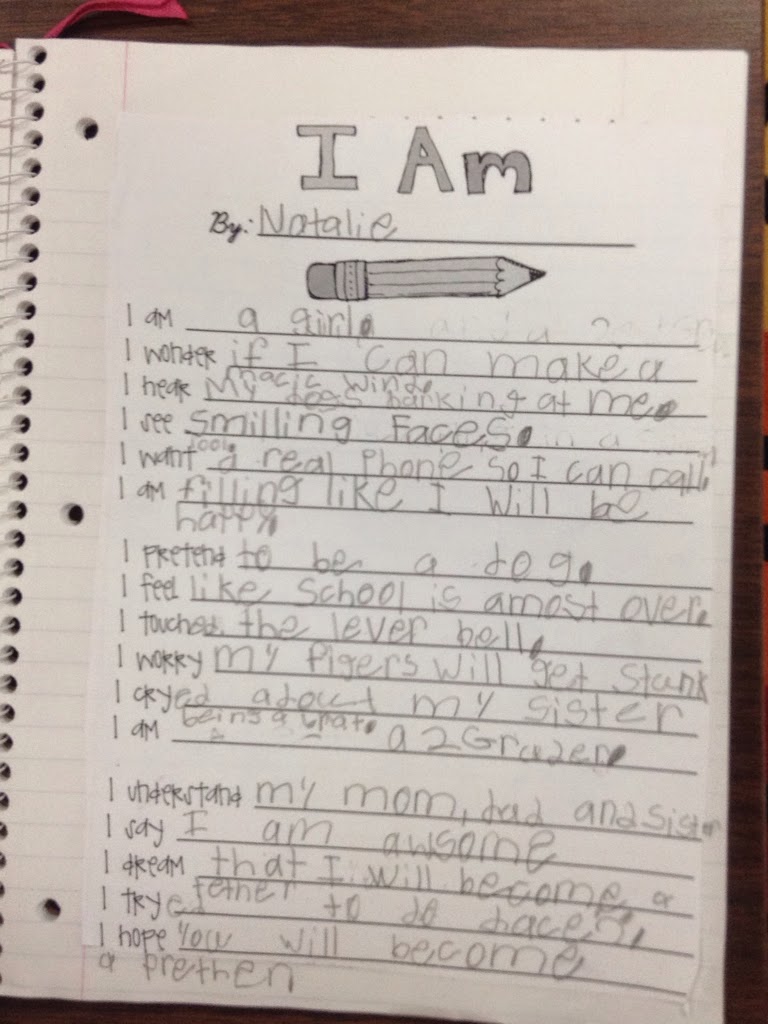 I Am
By: Natalie
I am a girl.
I wonder if I can make a
magic wind.
I hear my dogs barking at me.
I see smilling Faces.
I want a real Phone so I can call
I am filling like I will be
happy
I pretend to be a dog.
I feel like School is amost over.
I touched the lever bell.
I worry my figers will get stank
I cryed adout my sister
being a brat.
I am a 2 Grader
I understand my mom, dad and sister
I say I am awsome
I dream that I will become a
tether
I tryed to do daces.
I hope you will become
a prethen